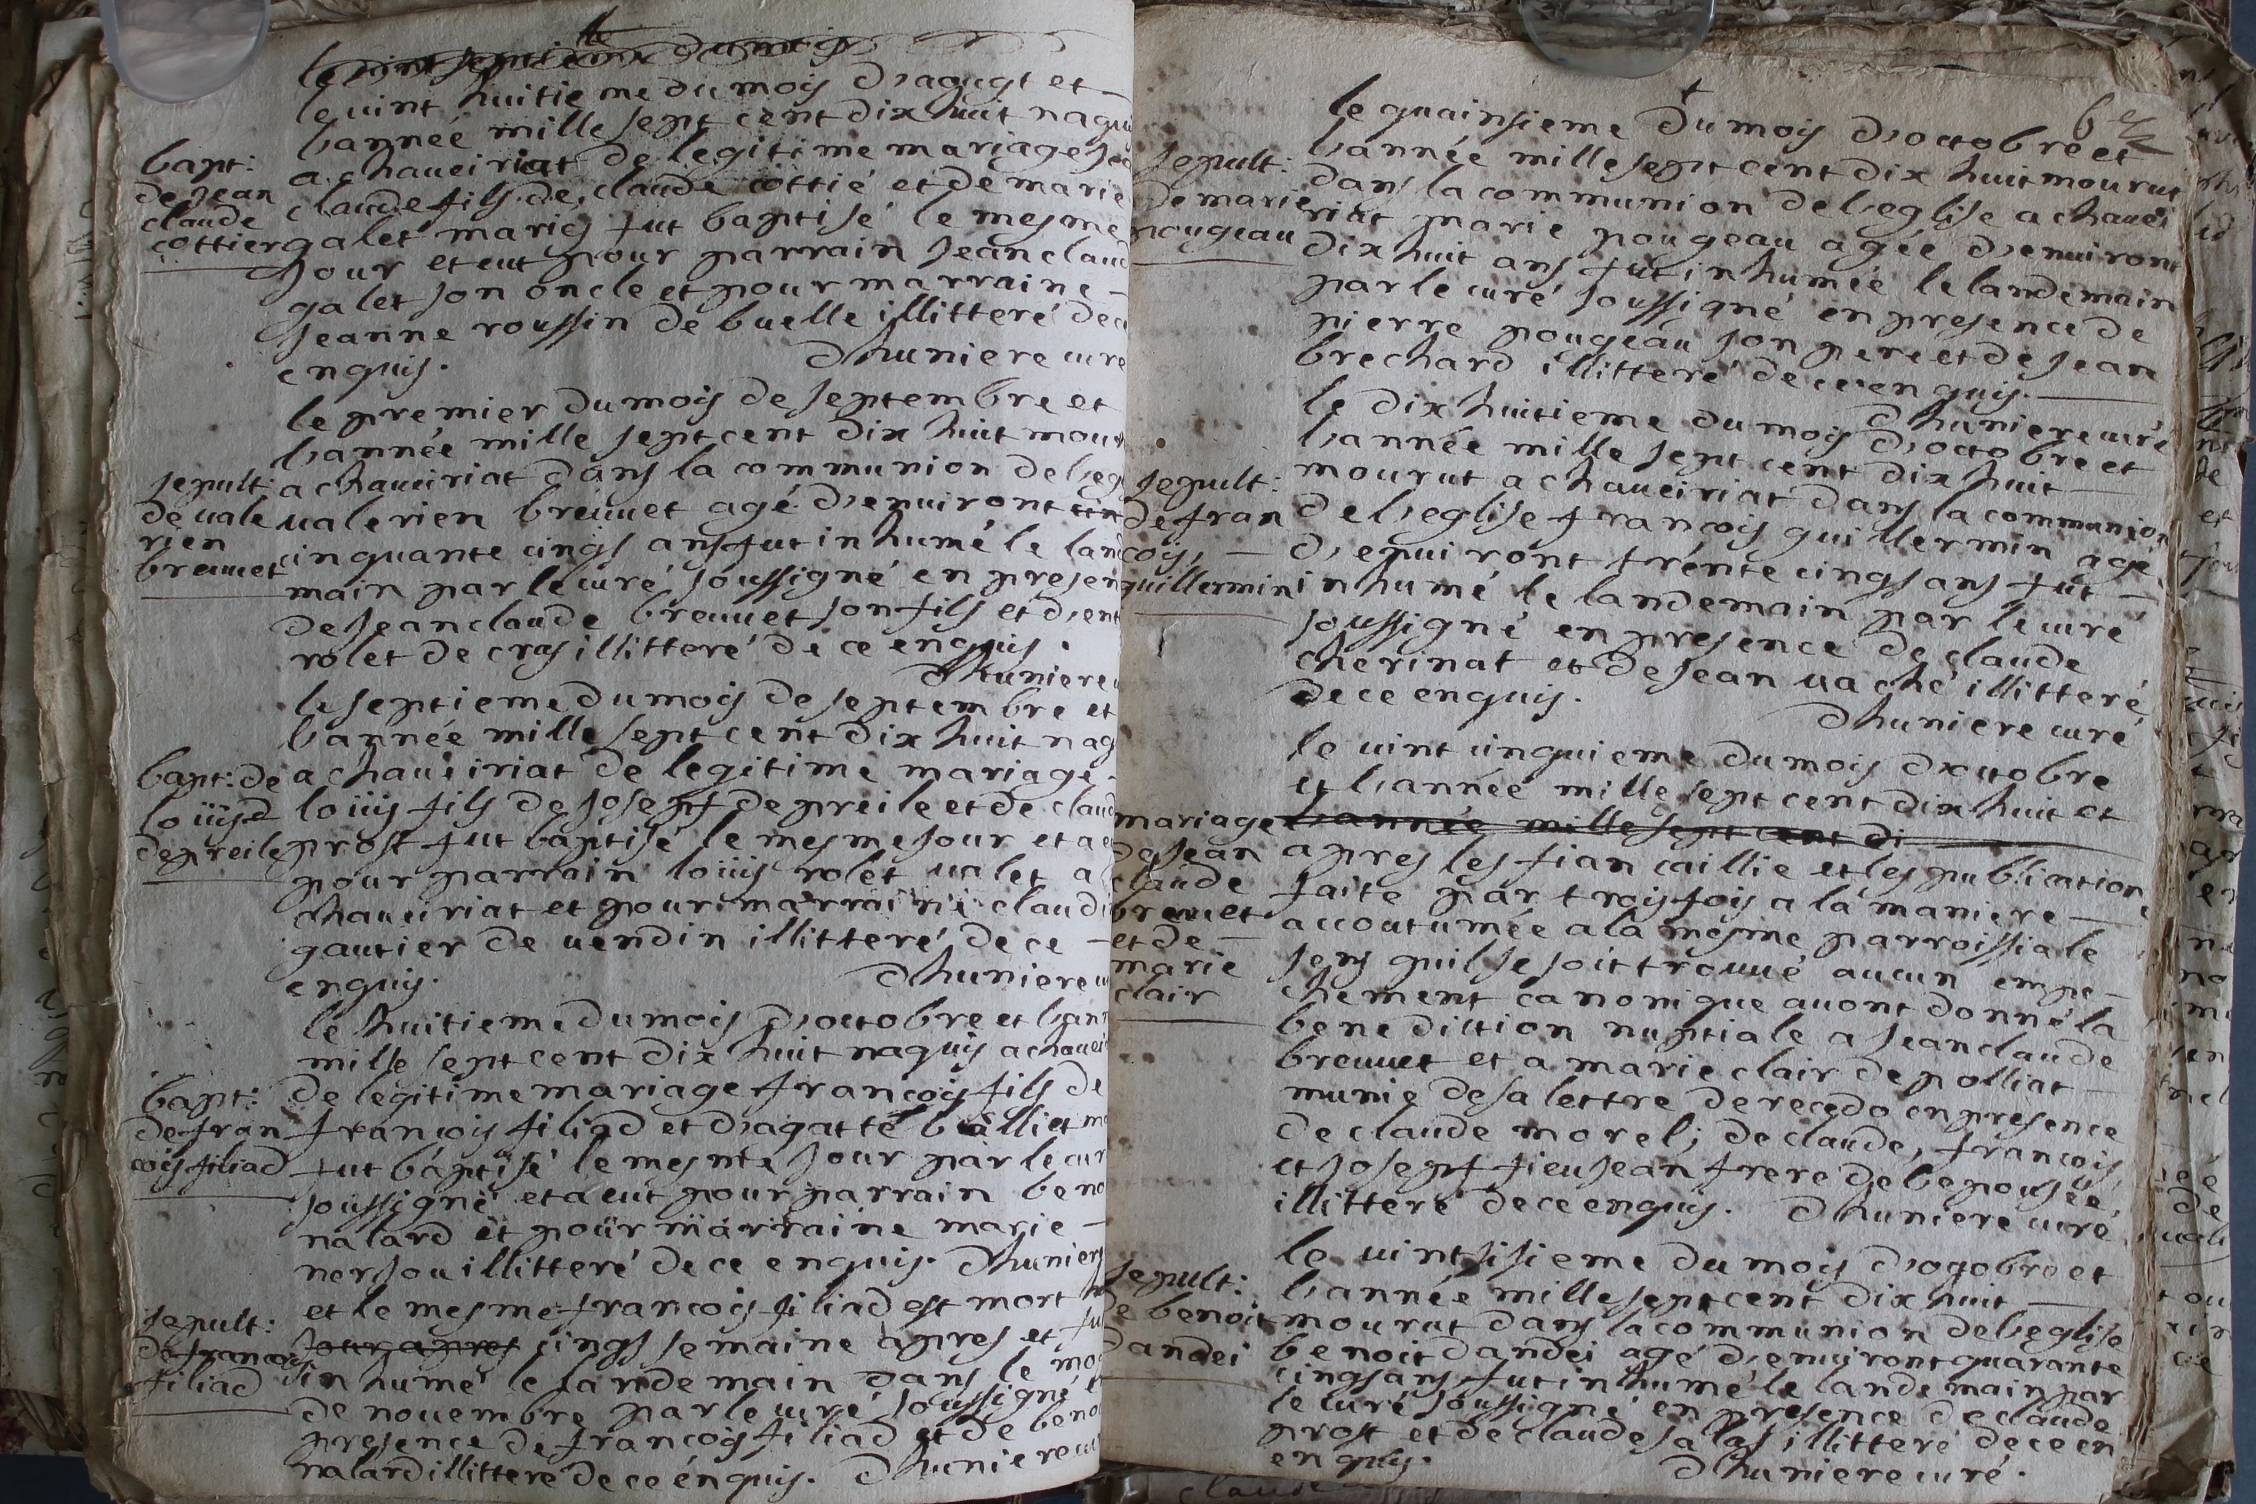 le vint septieme du mois
le vint huitieme du mois d'aougt et
l'année mille sept cent dix huit naqui
a chaveiriat de legitime mariage Jea
bapt:
de Jean
claude
cottier
claude fils de claude cottié et de marie
galet mariés fut baptisé le mesme
Jour et eut pour parrain Jean claud
galet son oncle et pour marraine
Jeanne roussin de buelle illitteré de ce
enquis. Dhuniere curé
le premier du mois de septembre et
l'année mille sept cent dix huit mour
sepult:
de vale
rien
breuvet
a chaveiriat dans la communion de l'eg
valerien breuvet agé d'environt
cinquante cinqs ans fut inhumé le land
main par le curé soussigné en presen
de Jean claude breuvet son fils et d'ent
rolet de cras illitteré de ce enquis.
Dhuniere
le septieme du mois de septembre et
l'année mille sept cent dix huit naq
bapt: de
loüis d
depreile
a chaveiriat de legitime mariage
loüis fils de Joseph depreile et de claud
prost fut baptisé le mesme Jour et a e
pour parrain loüis rolet valet a
chaveiriat et pour marraine claudi
gautier de vendin illitteré de ce
enquis. Dhuniere cu
le huitieme du mois d'octobre et l'ann
mille sept cent dix huit naquis a chavei
bapt:
de fran
cois filiad
de legitime mariage francois fils de
francois filiad et d'agatte balliet ma
fut baptisé le mesme Jour par le cur
soussigné et a eut pour parrain beno
nalard et pour marraine marie
nersou illitteré de ce enquis. Dhuniere
sepult:
de francois
filiad
et le mesme francois filiad est mort
Jour apres cinqs semaine apres et fu
inhumé le landemain dans le moi
de novembre par le curé soussigné e
presence de francois filiad et de beno
nalard illitteré de ce enquis. Dhuniere cur
le quainsieme du mois d'octobre et
l'année mille sept cent dix huit mourut
sepult:
de marie
pougeau
dans la communion de l'eglise a chavei
riat marie pougeau agée d'environt
dix huit ans fut inhumée le landemain
par le curé soussigné en presence de
pierre pougeau son pere et de Jean
brechard illitteré de ce enquis.
Dhuniere curé
le dix huitieme du mois d'octobre et
l'année mille sept cent dix huit
sepult:
de fran
cois
guillermin
mourut a chaveiriat dans la communion
de l'eglise francois guillermin agé
d'environt trente cinqs ans fut
inhumé le landemain par le curé
soussigné en presence de claude
cherinat et de Jean vaché illitteré
de ce enquis.
Dhuniere curé
le vint cinquieme du mois d'octobre
et l'année mille sept cent dix huit et
l'année mille sept cent di
mariage
de Jean
claude
breuvet
et de
marie
clair
apres les fiancaillie et les publication
faite par trois fois a la maniere
accoutumée a la mesme parroissiale
sens quil se soit trouvé aucun empe
chement canonique avont donné la
benediction nuptiale a Jean claude
breuvet et a marie clair de polliat
munie de sa lettre de recedo en presence
de claude morel; de claude, francois
et Joseph fieu Jean frere de l'epousée,
illitteré de ce enquis. Dhuniere curé
le vint sisieme du mois d'ogobre et
l'année mille sept cent dix huit
sepult:
de benoit
dandei
mourut dans la communion de l'eglise
benoit dandei agé d'environt quarante
cinqs ans fut inhumé le landemain par
le curé soussigné en presence de claude
prost et de claude salas illitteré de ce en
enquis. Dhuniere curé.